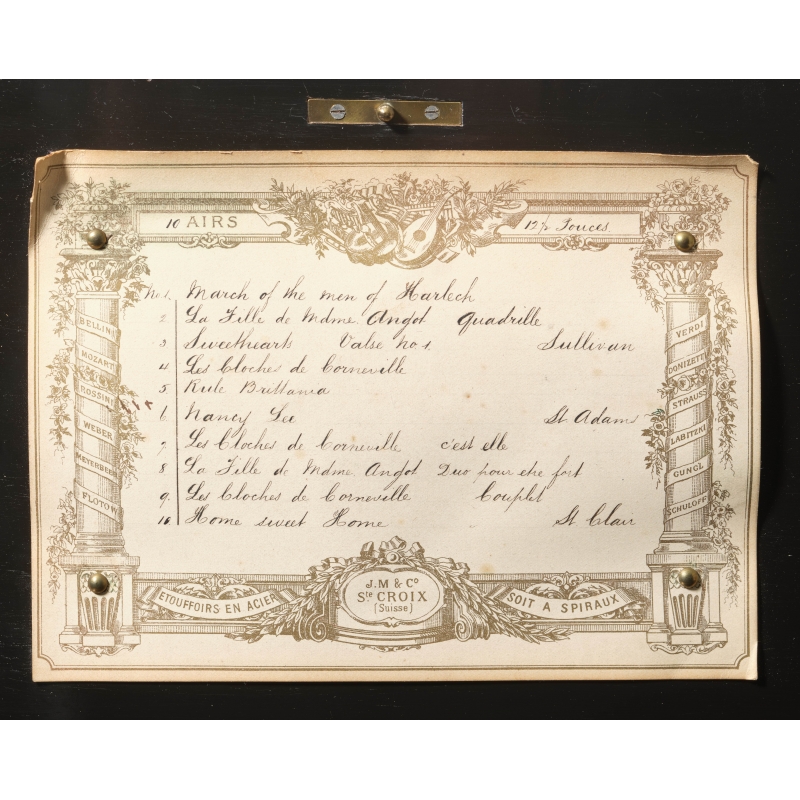 10 AIRS 13½ Pouces
No. 1. March of the men of Harlech
2. La Fille de Mdme. Angot Quadrille
3 Sweethearts Valse No 1. Sullivan
4 Les Cloches de Corneville
5. Rule Brittania
6. Nancy Lee St Adams
7. Les Cloches de Corneville c'est elle
8 La Fille de Mdme. Angot Duo pour etre fort
9. Les Cloches de Corneville Couplet
10 Home sweet Home St Clair
BELLINI
MOZART
ROSSINI
WEBER
MEYERBEER
FLOTOW
VERDI
DONIZETTI
STRAUSS
LABITZKI
GUNGL
SCHULOFF
ETOUFFOIRS EN ACIER
J.M & Co
Ste CROIX
(Suisse)
SOIT A SPIRAUX